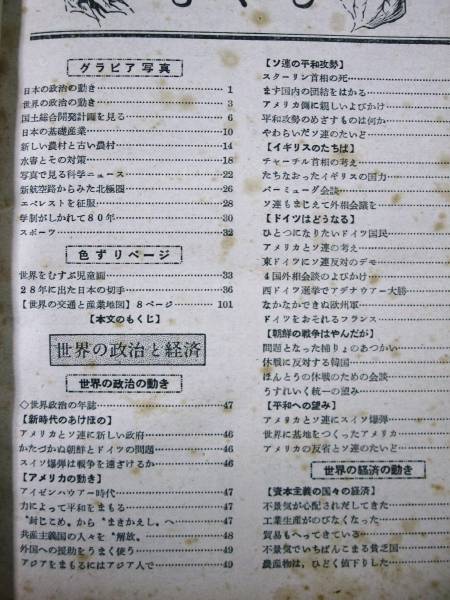 もくじ
グラビア写真
日本の政治の動き 1
世界の政治の動き 3
国土総合開発計画を見る 6
日本の基礎産業 10
新しい農村と古い農村 14
水害とその対策 18
写真で見る科学ニュース 22
新航空路からみた北極圏 26
エベレストを征服 28
学制がしかれて80年 30
スポーツ 32
色ずりページ
世界をむすぶ児童画 33
28年に出た日本の切手 36
【世界の交通と産業地図】8ページ 101
【本文のもくじ】
世界の政治と経済
世界の政治の動き
◇世界政治の年誌 47
【新時代のあけぼの】
アメリカとソ連に新しい政府 46
かたづかぬ朝鮮とドイツの問題 46
スイソ爆弾は戦争を遠ざけるか 46
【アメリカの動き】
アイゼンハウアー時代 47
力によって平和をまもる 47
〝封じこめ〟から〝まきかえし〟へ 47
共産主義国の人々を〝解放〟 48
外国への援助をうまく使う 49
アジアをまもるにはアジア人で 49
【ソ連の平和攻勢】
スターリン首相の死
まず国内の団結をはかる
アメリカ側に親しいよびかけ
平和攻勢のめざすものは何か
やわらいだソ連のたいど
【イギリスのたちば】
チャーチル首相の考え
たちなおったイギリスの国力
バーミューダ会談
ソ連もまじえて外相会議を
【ドイツはどうなる】
ひとつになりたいドイツ国民
アメリカとソ連の考え
東ドイツにソ連反対のデモ
4国外相会談のよびかけ
西ドイツ選挙でアデナウアー大勝
なかなかできぬ欧州軍
ドイツをおそれるフランス
【朝鮮の戦争はやんだが】
問題となった捕りょのあつかい
休戦に反対する韓国
ほんとうの休戦のための会談
うすれいく統一の望み
【平和への望み】
アメリカとソ連にスイソ爆弾
世界に基地をつくったアメリカ
アメリカの反省とソ連のたいど
世界の経済の動き
【資本主義の国々の経済】
不景気が心配されだしてきた
工業生産がのびなくなった
貿易もへってきている
不景気でいちばんこまる貧乏国
農産物は、ひどく値下りした